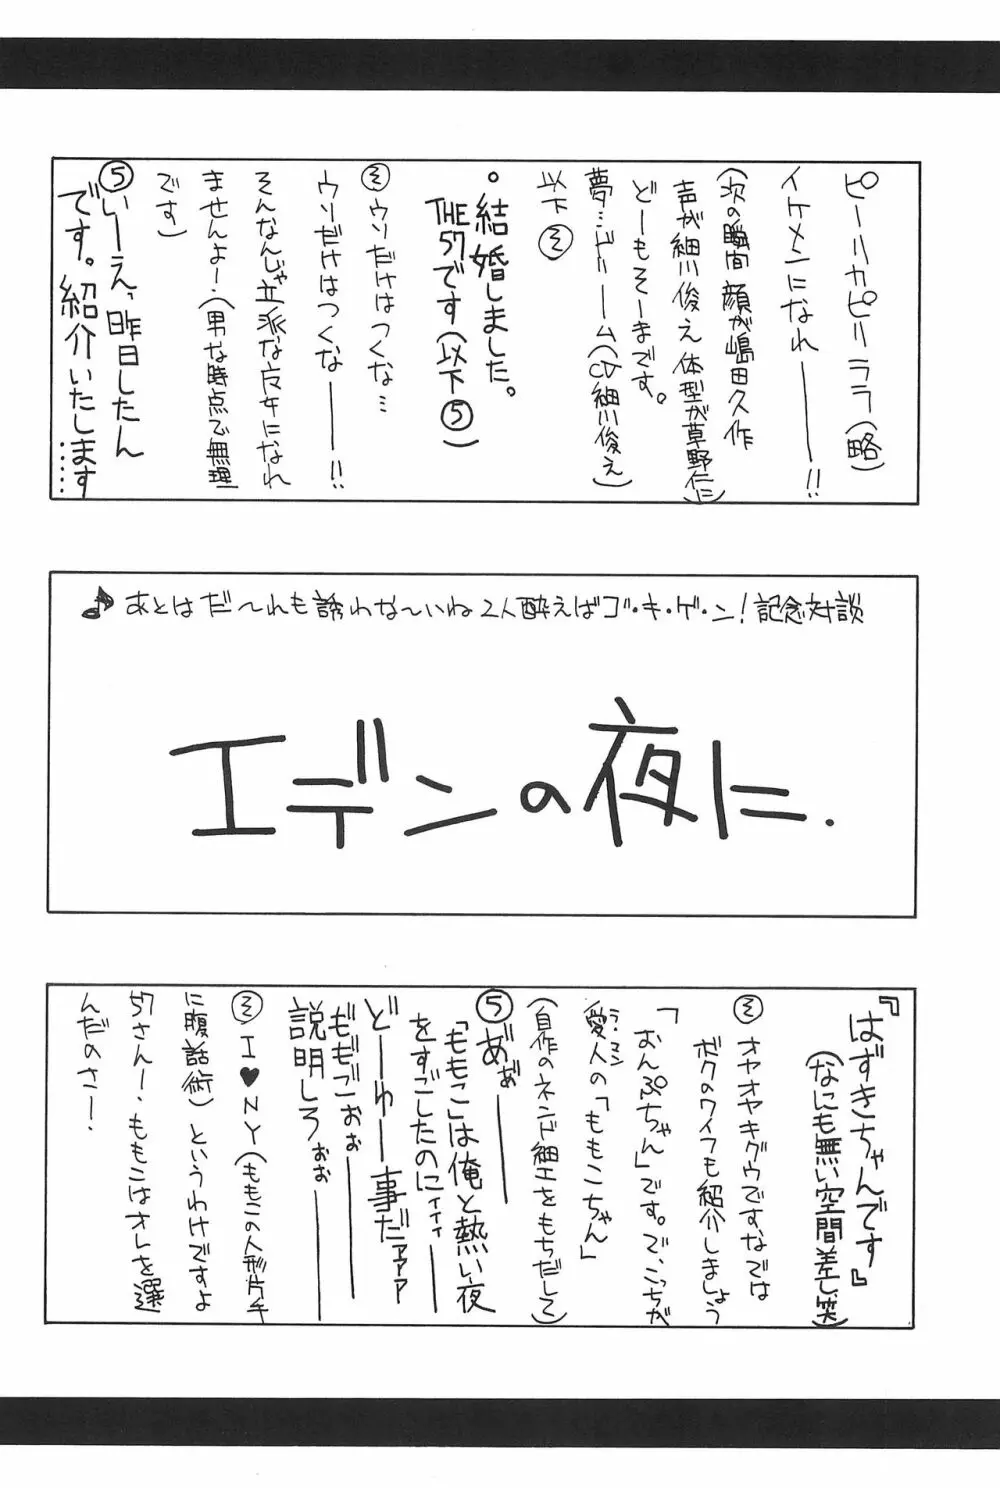 ピーリカピリララ(略)
イケメンになれー!!
(次の瞬間 顔が嶋田久作
声が細川俊え 体型が草野仁に)
どーもそーまです。
夢…ドリーーム(CV細川俊え)
以下そ
。結婚しました。
THE57です(以下5)
そ ウソだけはつくな…
ウソだけはつくなー!!
そんなんじゃ立派な魔女になれ
ませんよー・(男な時点で無理
です)
5 いーえ、昨日したん
です。紹介いたします……
♪あとはだ〜れも誘わな〜いね2人酔えばゴ・キ・ゲ・ン!記念対談
エデンの夜に.
『はずきちゃんです』
(なにも無い空間差し笑)
そ オヤオヤキグウですなでは
ボクのワイフも紹介しましょう
「おんぷちゃん」です。で、こっちが
愛人の「ももこちゃん」
ラ・マン
(自作のネンド細工をもちだして)
5 あ゛ぁ゛ーー
「ももこ」は俺と熱い夜
をすごしたのにィィィー
どーゆー事だァァァ
ももごぉぉー
説明しろぉぉー
そ I♥NY(ももこの人形片手
に腹話術)というわけですよ
57さんー、ももこはオレを選
んだのさー!